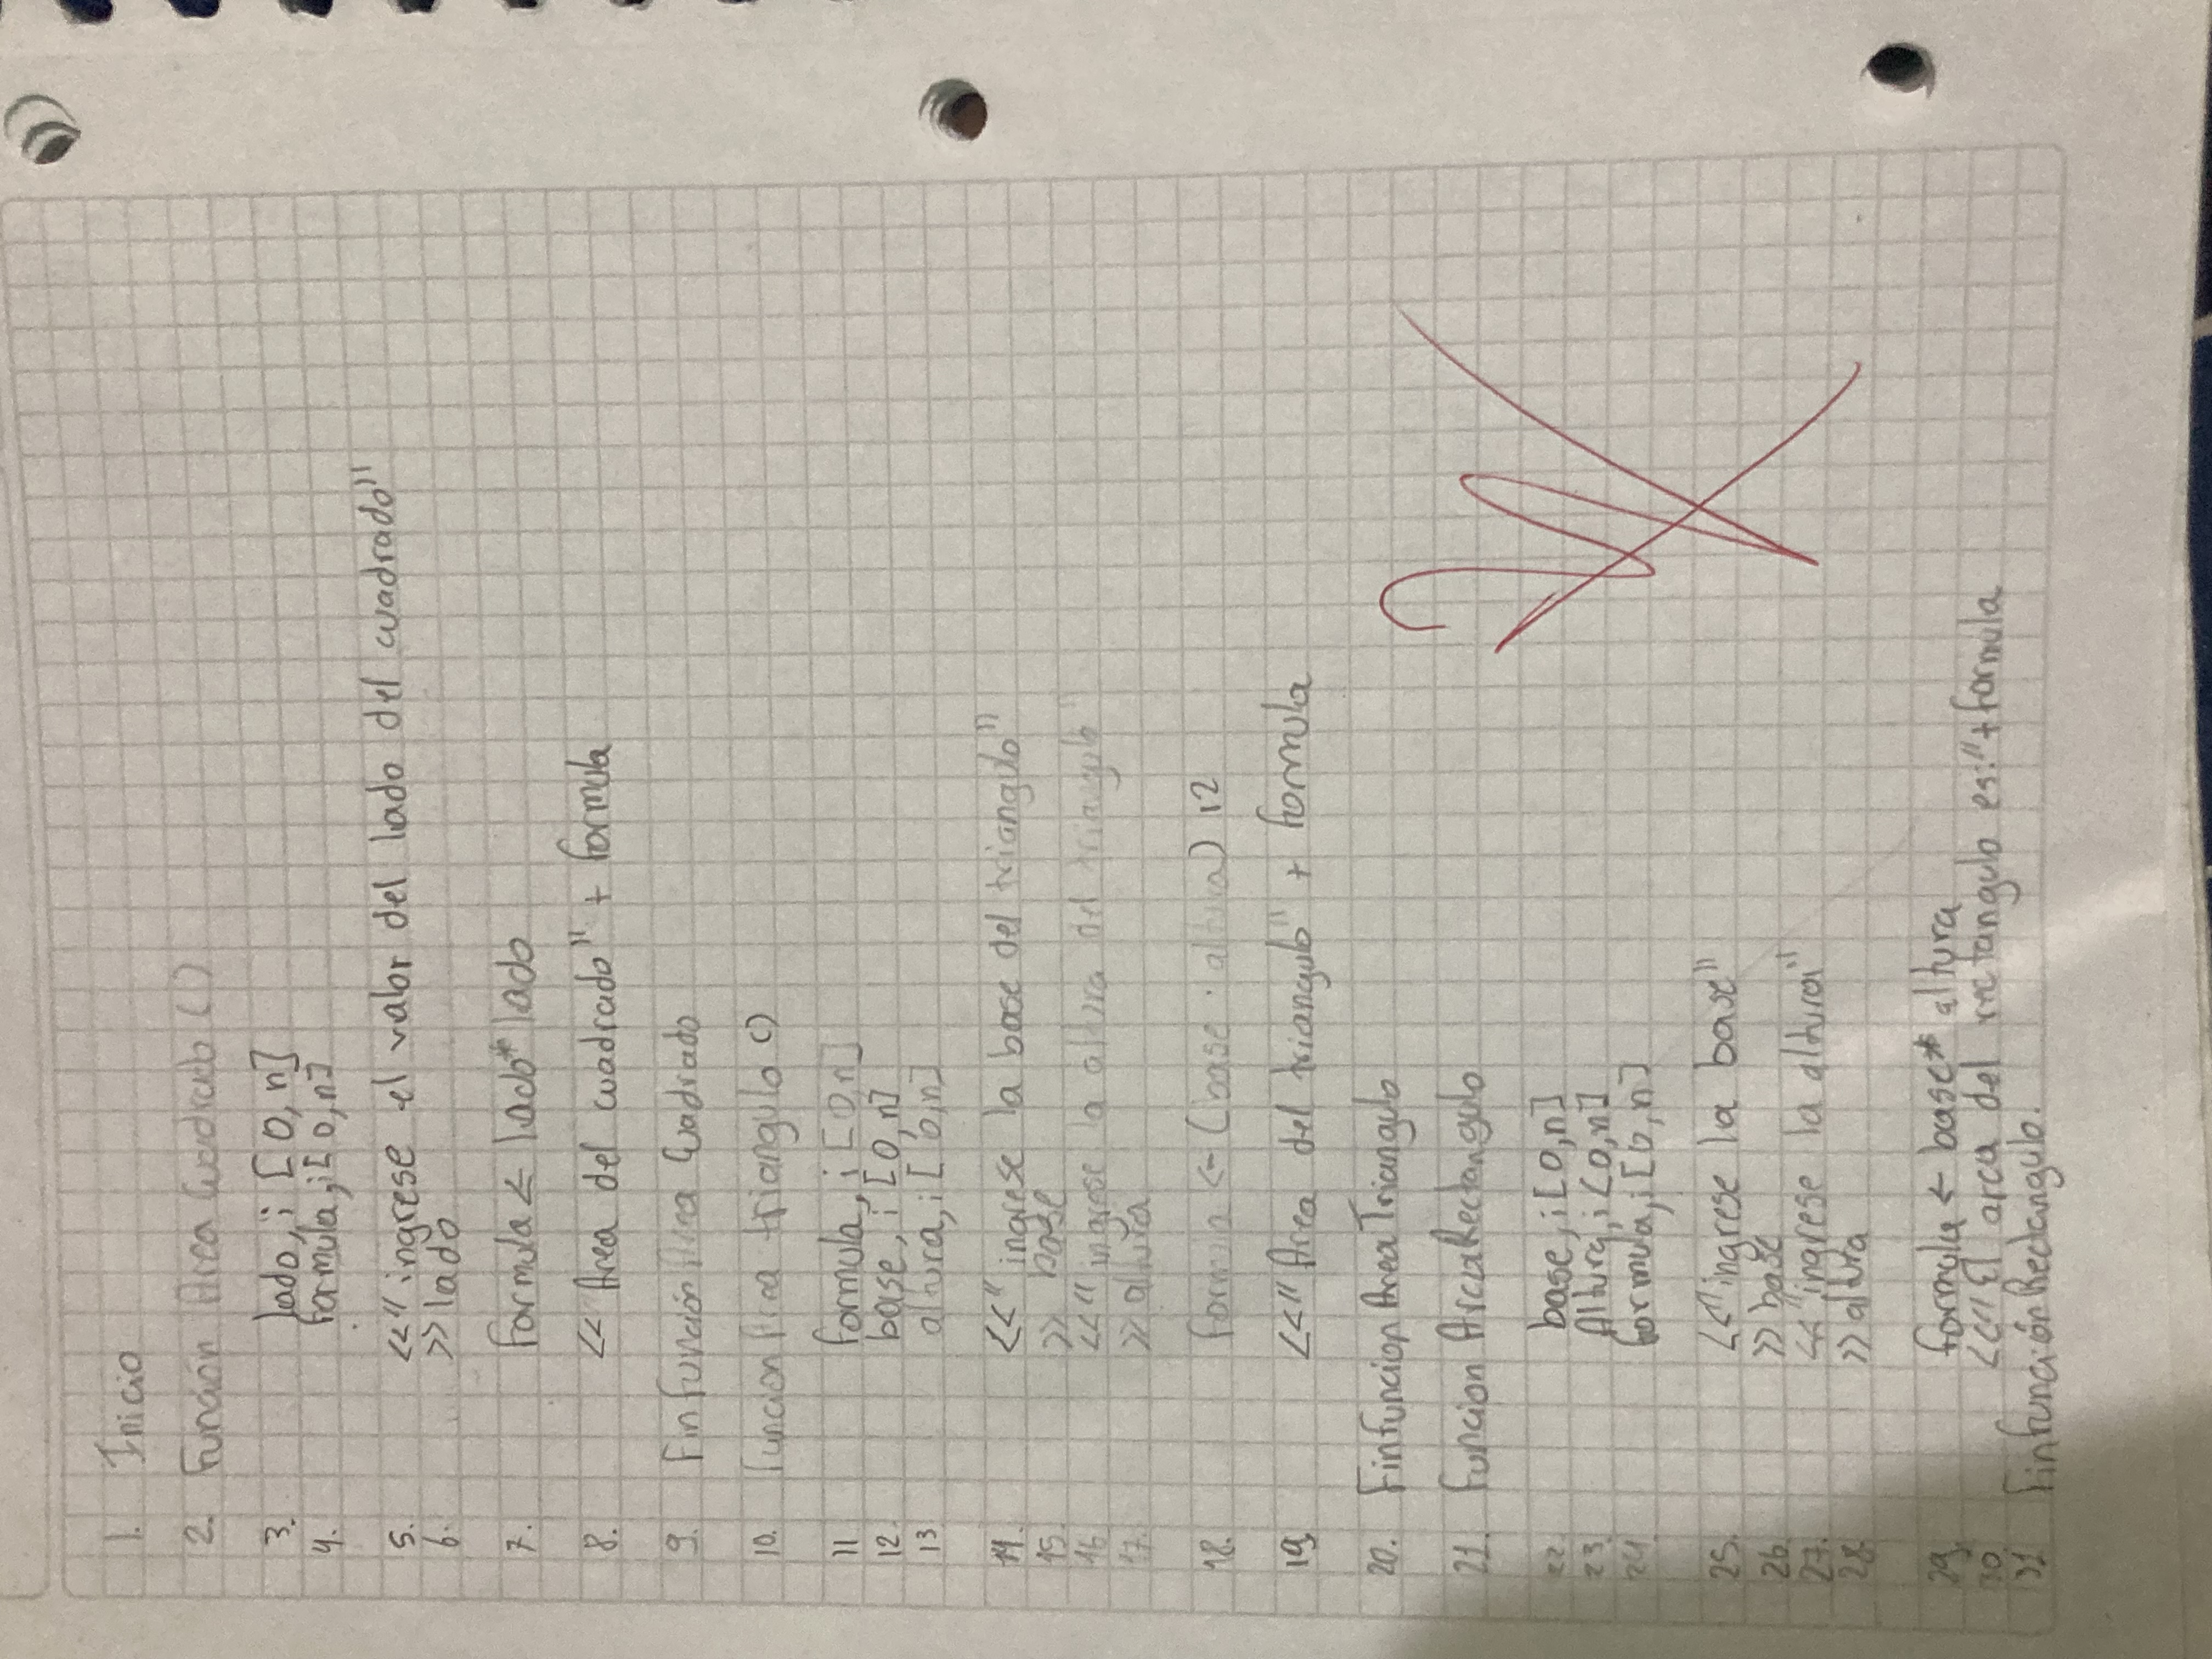 1. Inicio
2. Función Area Cuadrado ( )
3. lado, i [0, n]
4. formula, i [0, n]
5. <<" ingrese el valor del lado del cuadrado"
6. >> lado
7. formula <- lado * lado
8. << Area del cuadrado" + formula
9. Fin función Area Cuadrado
10. Funcion Area triangulo ()
11 formula, i [0,n]
12. base, i [0, n]
13 altura, i [0,n]
14. <<" ingrese la base del triangulo"
15. >> base
16 <<" ingrese la altura del triangulo"
17. >> altura
18. formula <- (base · altura) 12
19. <<" Area del triangulo" + formula
20. Finfuncion Area Triangulo
21. Funcion AreaRectangulo
22. base, i [0,n]
23. Altura, i <0,n]
24 formula, i [0, n]
25. <<"ingrese la base"
26. >> base
27. <<"ingrese la altura"
28. >> altura
29. formula <- base * altura
30 <<"El area del rectangulo es:"+formula
31 FinfunciónRectangulo.